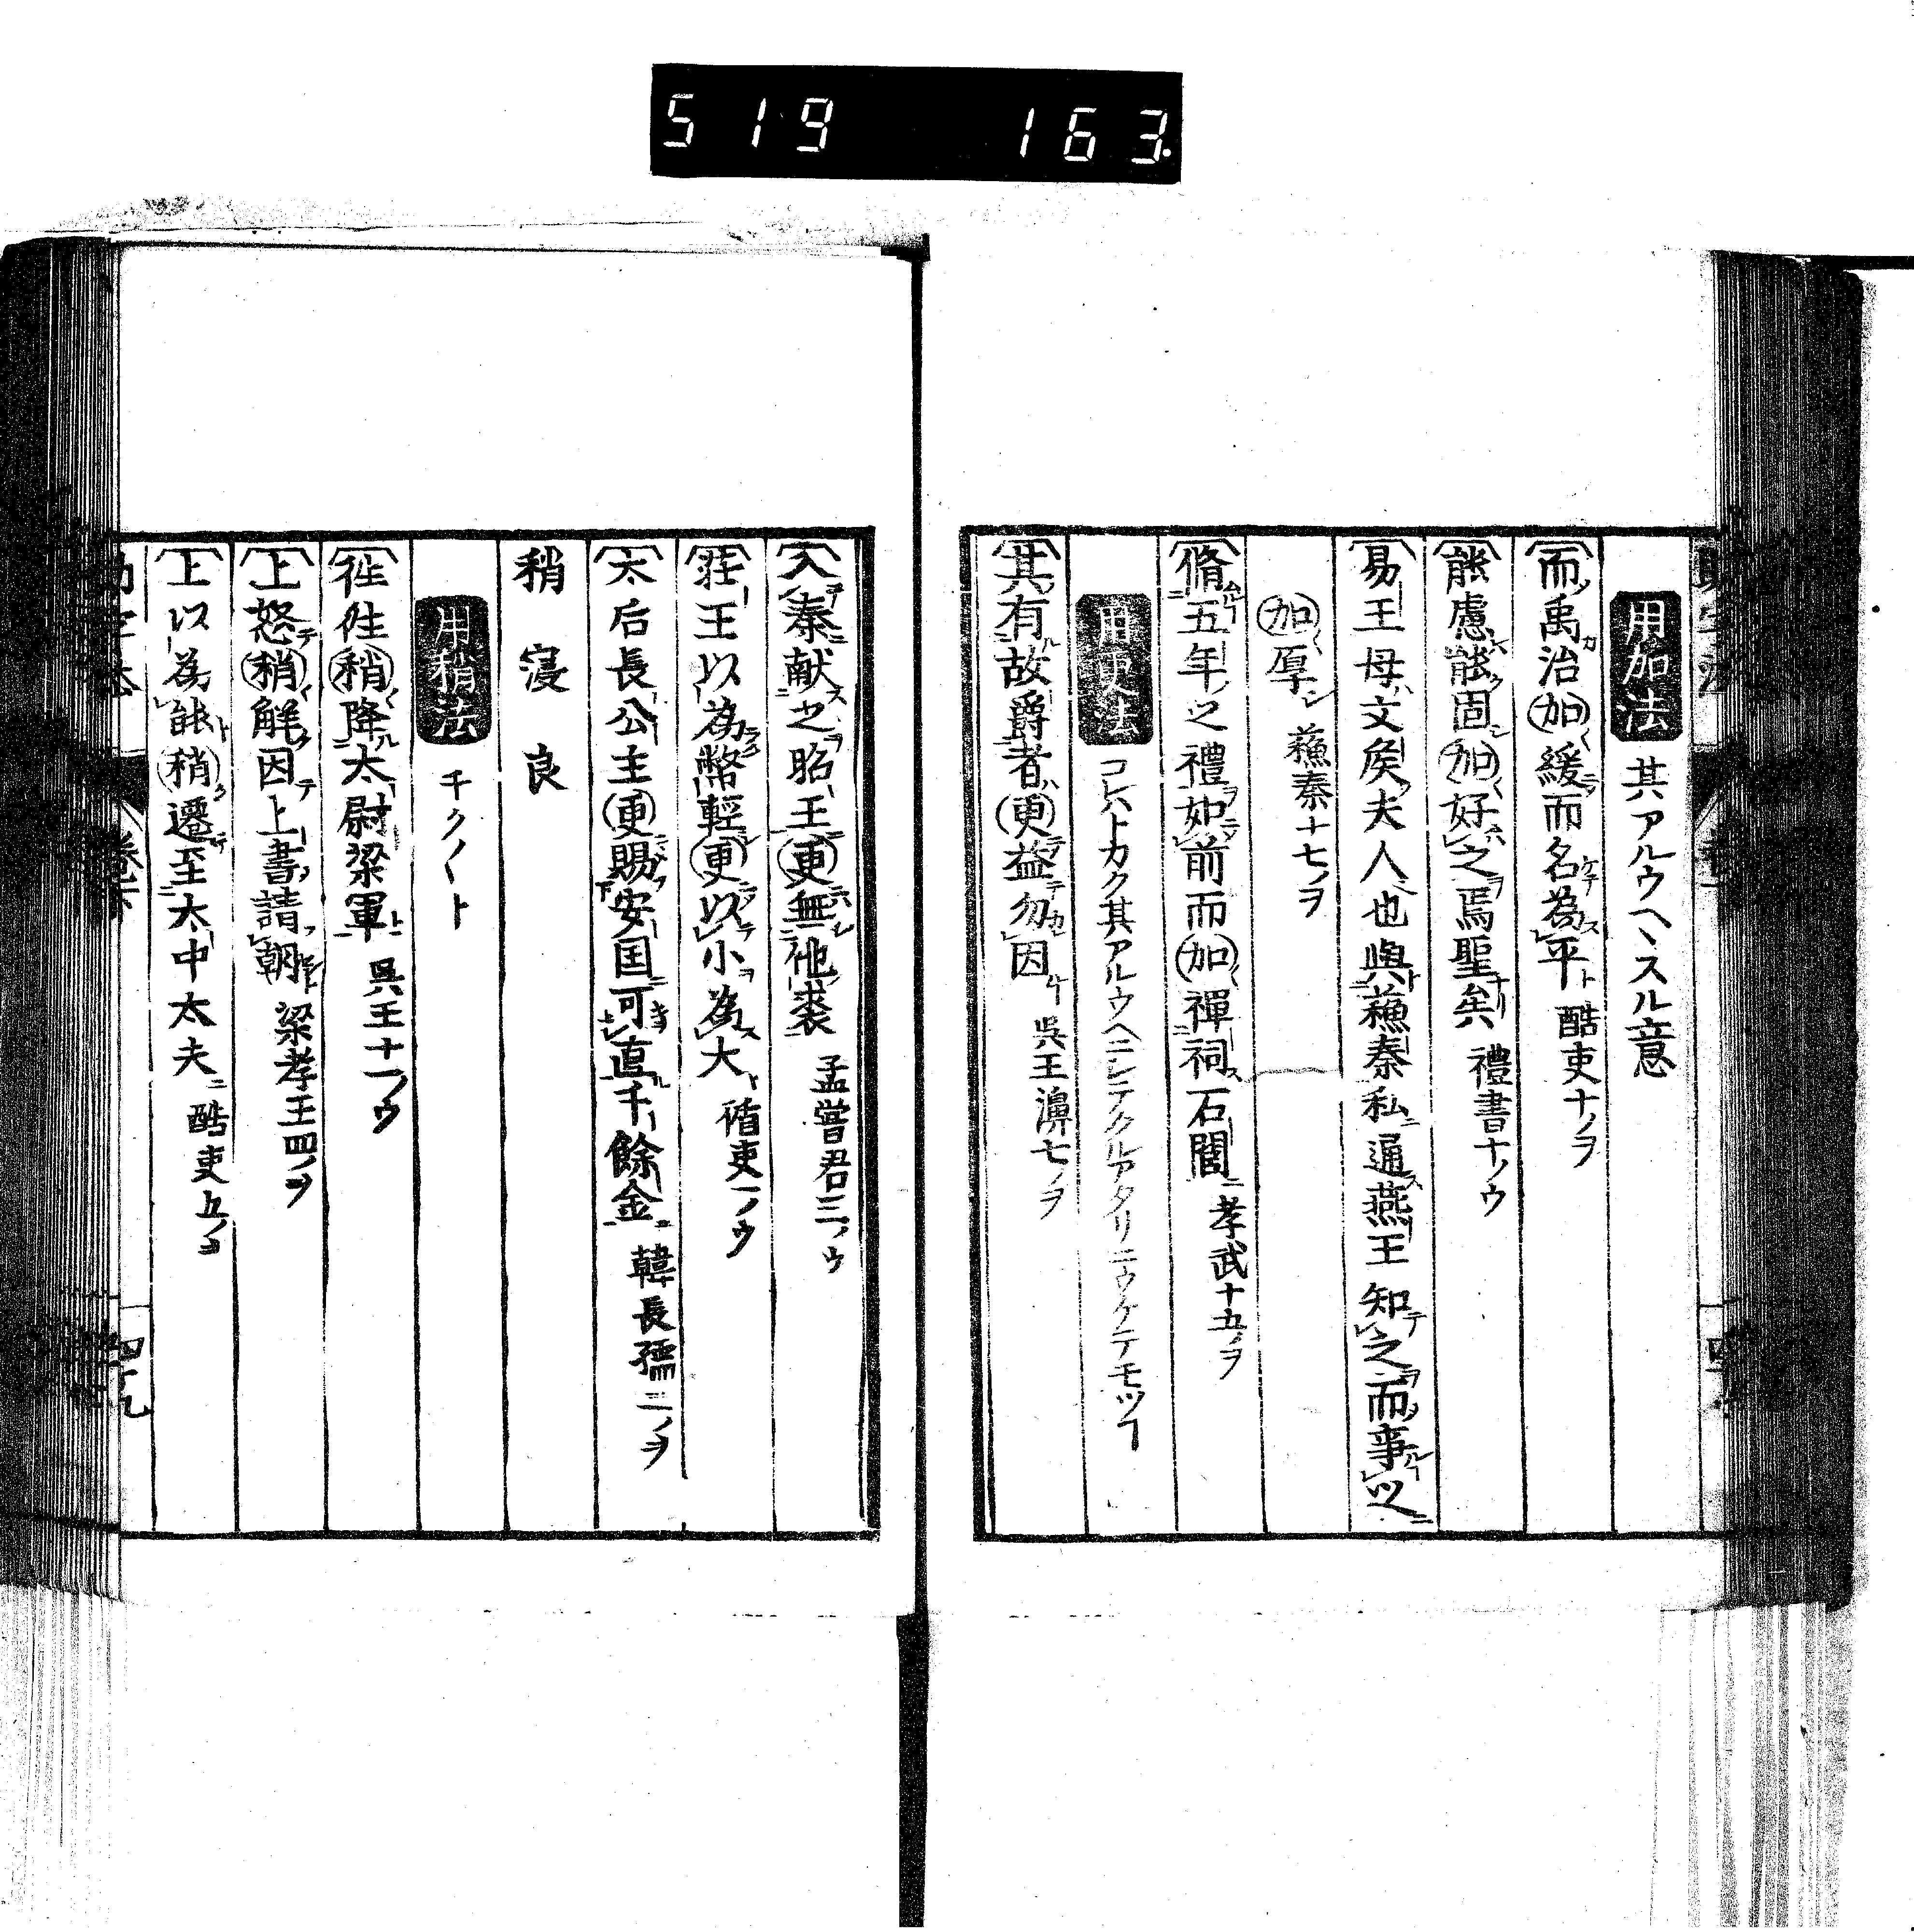 519 163.
用加法 其アルウヘヽスル意
而禹治加緩而名為平 酷吏十ノヲ
能慮能固加好之焉聖矣 禮書十ノウ
易王母文矦夫人也與蘓秦私通燕王知之而事之
加厚 蘓秦十七ノヲ
脩五年之禮如前而加禪祠石閭 孝武十五ノヲ
用更法 コレハトカク其アルウヘニシテクルアタリニウケテモツヿ
其有故爵者更益勿因 吳王濞七ノヲ
入秦献之昭王更無他裘 孟嘗君三ノウ
莊王以為幣輕更以小為大 循吏一ノウ
太后長公主更賜安国可直千餘金 韓長孺二ノヲ
稍 寖 良
用稍法 チク〱ト
徃徃稍降太尉梁軍 吳王十一ノウ
上怒稍觧因上書請朝 梁孝王四ノヲ
上以為能稍遷至太中太夫 酷吏五ノヲ
卷下 四十九